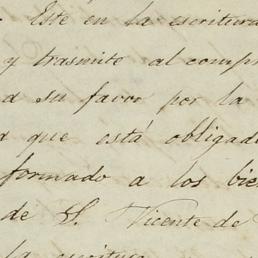 . Este en la escritura
y trasmite al comp
a su favor por la
que está obligad
formado a los bie
de S. Vicente de
la escritura